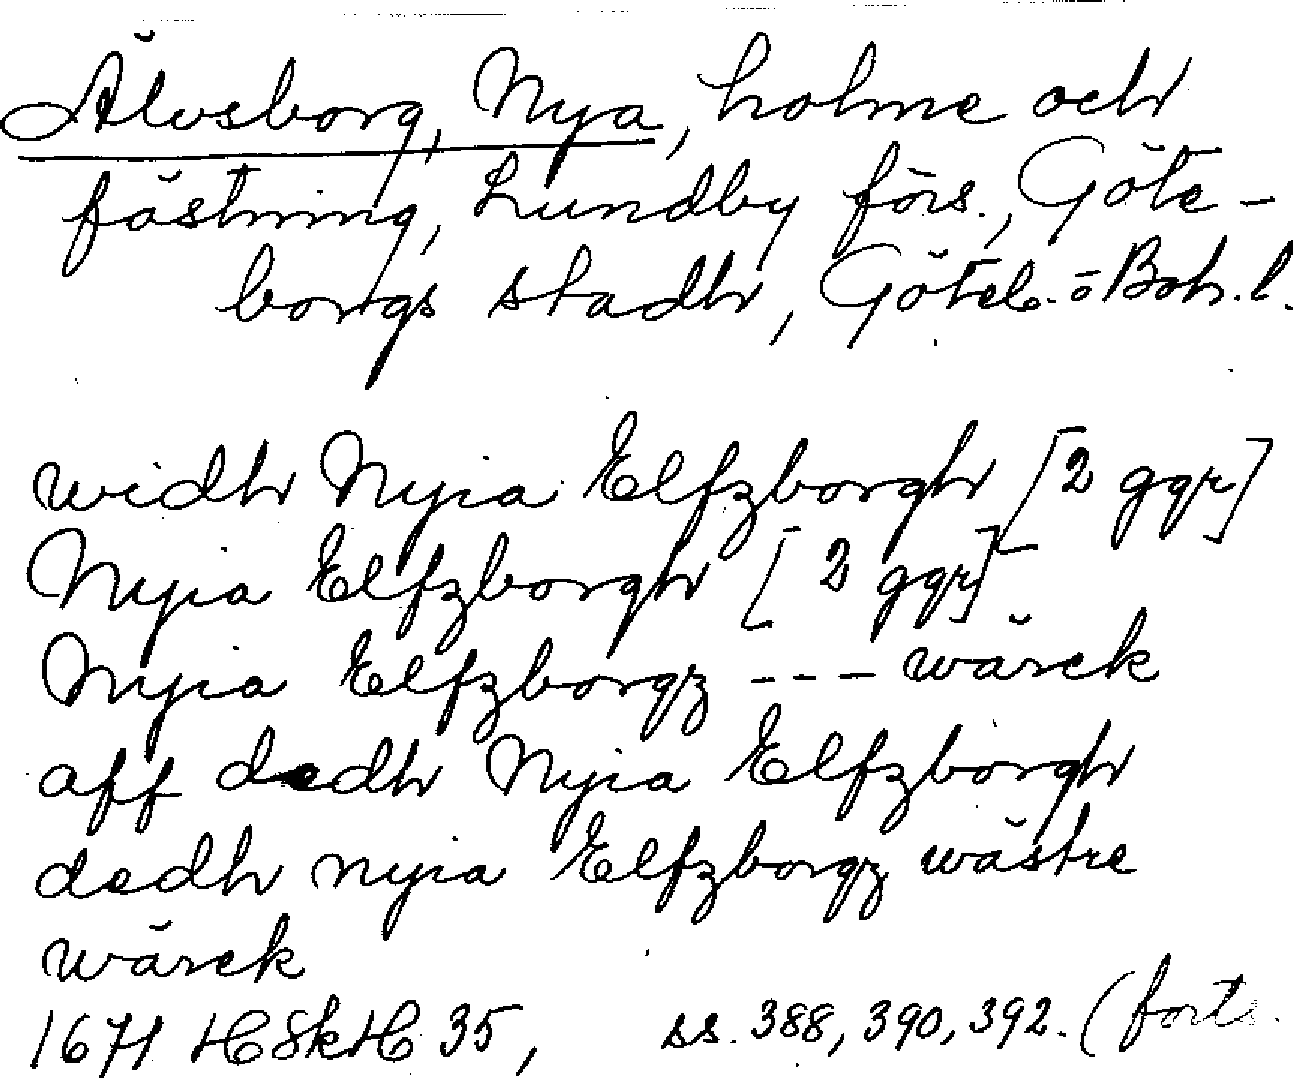 Älvsborg, Nya, holme och
fästning, Lundby förs., Göte-
borgs stadh, Göteb. o Boh. l.
widh Nyia Elfzborgh [2 ggr]
Nyia Elfzborgh [2 ggr]
Nyia Elfzborgz --- wärck
aff dedh Nyia Elfzborgh
dedh nyia Elfzborgz wästre
wärck
1671 HSkH 35, ss. 388, 390, 392. (forts.